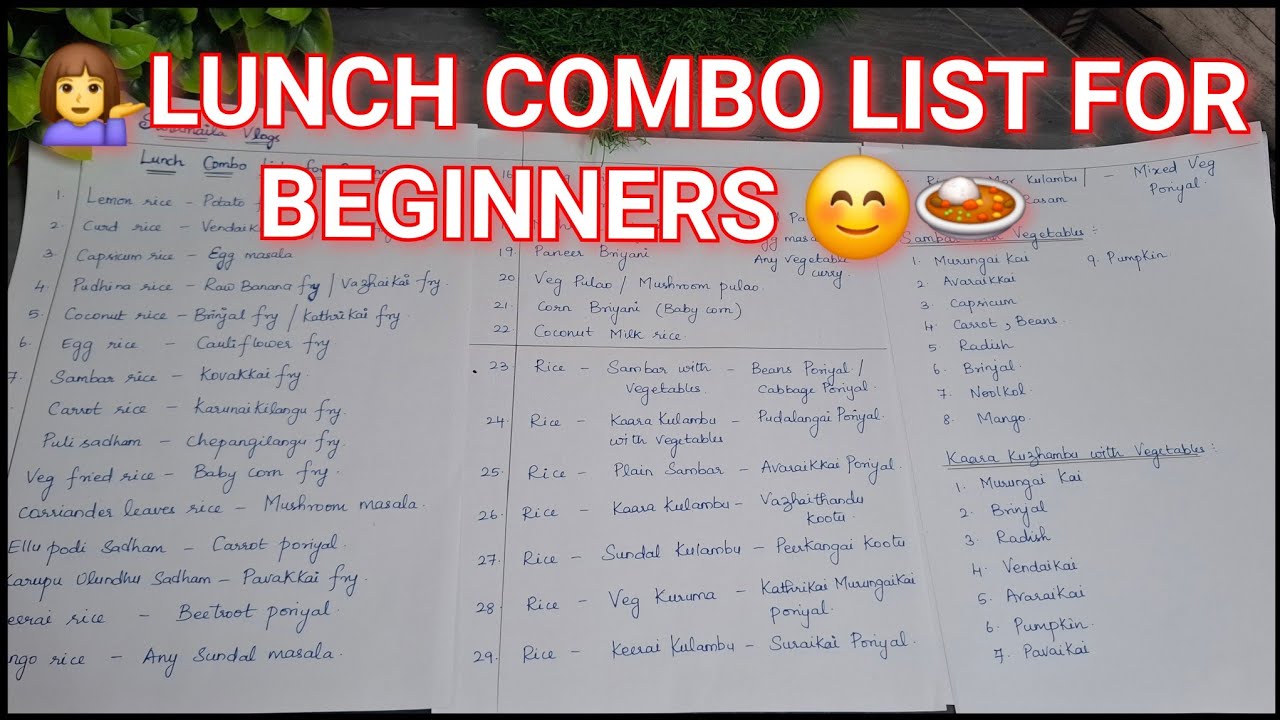 LUNCH COMBO LIST FOR
BEGINNERS
Vlogs
Lunch Combo
1. Lemon rice - Potato
2. Curd rice - Vendaikai
3. Capsicum rice - Egg masala
4. Pudhina rice - Raw Banana fry / Vazhaikai fry.
5. Coconut rice - Brinjal fry / Kathrikai fry.
6. Egg rice - Cauliflower fry
7. Sambar rice - Kovakkai fry.
Carrot rice - Karunaikilangu fry.
Puli sadham - Chepangilangu fry.
Veg fried rice - Baby corn fry.
Corriander leaves rice - Mushroom masala.
Ellu podi Sadham - Carrot poriyal.
Karupu Ulundhu Sadham - Pavakkai fry.
eerai rice - Beetroot poriyal.
ngo rice - Any Sundal masala.
16.
19. Paneer Briyani
egg masala
Any vegetable
curry.
20 Veg Pulao / Mushroom pulao.
21. Corn Briyani (Baby corn)
22. Coconut Milk rice.
23. Rice - Sambar with - Beans Poriyal /
Vegetables Cabbage Poriyal.
24. Rice - Kaara Kulambu - Pudalangai Poriyal.
with vegetables
25. Rice - Plain Sambar - Avaraikkai Poriyal.
26. Rice - Kaara Kulambu - Vazhaithandu
Kootu.
27. Rice - Sundal Kulambu - Peerkangai Kootu
28 Rice - Veg Kuruma - Kathrikai Murungaikai
poriyal.
29. Rice - Keerai Kulambu - Suraikai Poriyal.
Mor Kulambu / - Mixed Veg
Rasam Poriyal.
Vegetables :
1. Murungai Kai
2. Avaraikkai
3. Capsicum
4. Carrot, Beans.
5 Radish
6. Brinjal.
7. Noolkol
8. Mango.
9. Pumpkin
Kaara Kuzhambu with Vegetables :
1. Murungai Kai
2. Brinjal
3. Radish
4. Vendaikai
5. Avaraikai
6. Pumpkin.
7. Pavaikai